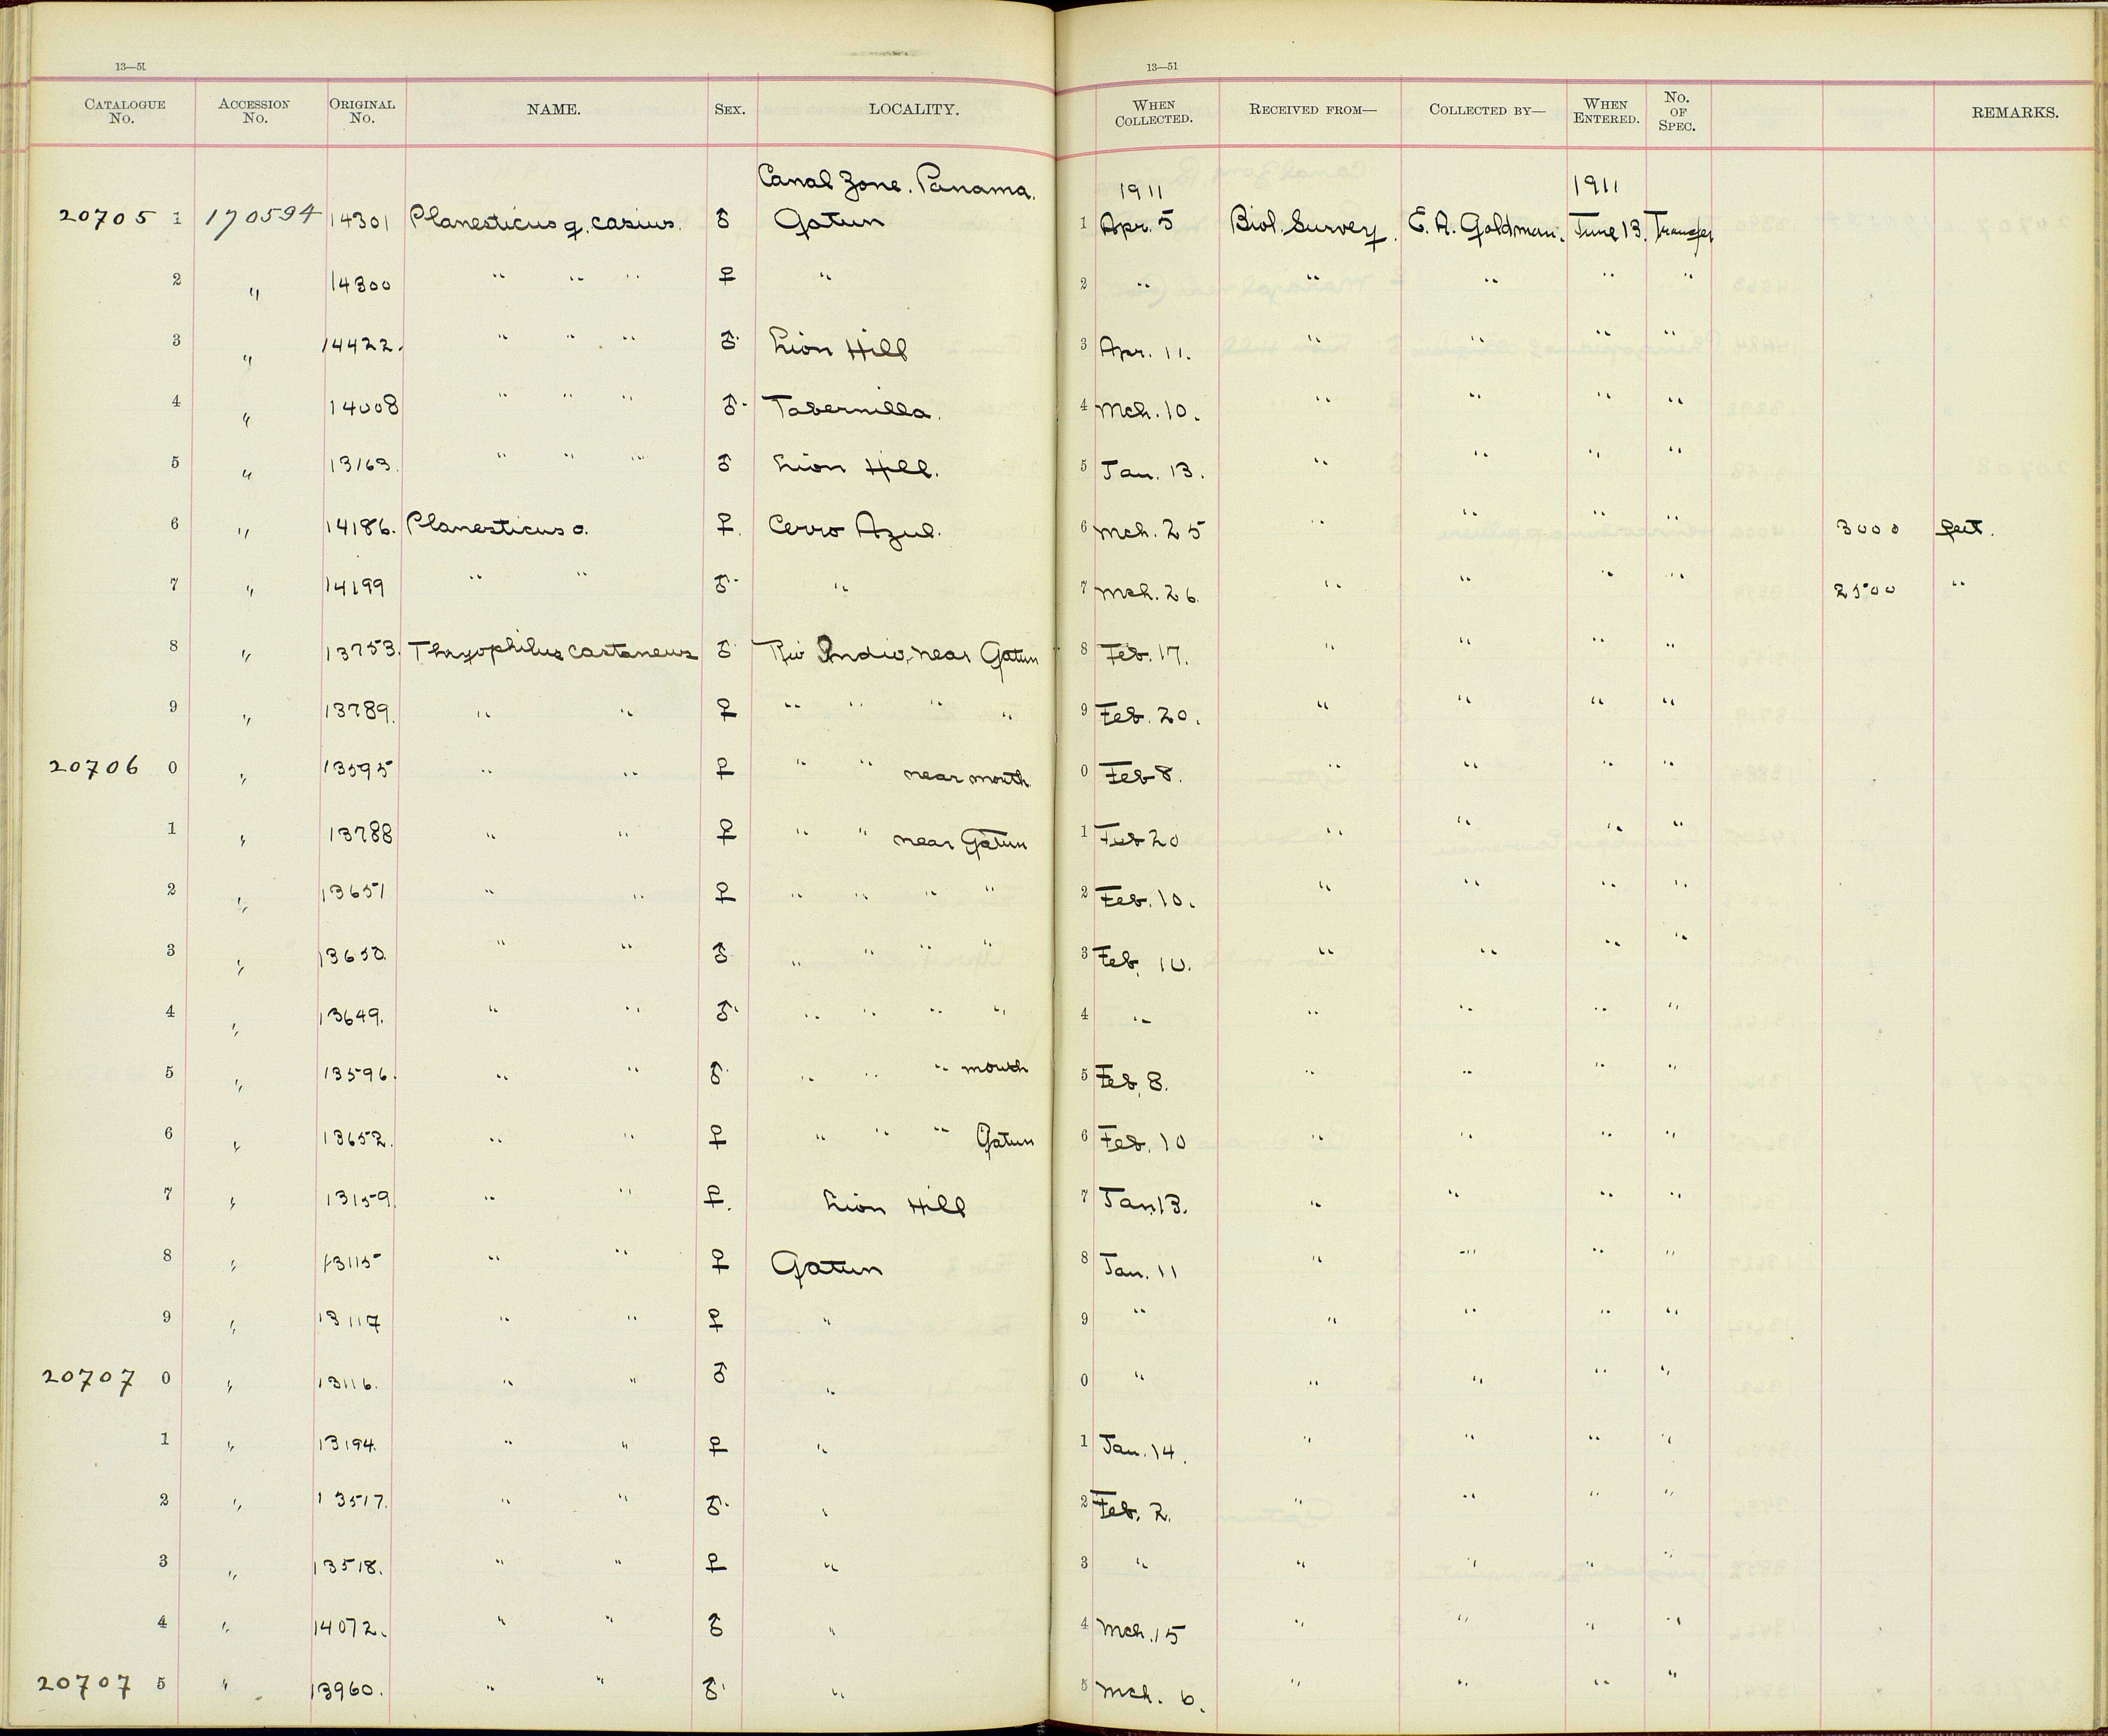 13—51
13—51
CATALOGUE No. ACCESSION No. ORIGINAL No. NAME. SEX. LOCALITY. WHEN COLLECTED. RECEIVED FROM— COLLECTED BY— WHEN ENTERED. No. OF SPEC. REMARKS.
Canal Zone. Panama. 1911 1911
20705 1 170594 14301 Planesticus g. casius. ♂ Gatun 1 Apr. 5 Biol. Survey. E. A. Goldman. June 13. Transfer
2 " 14300 " " " ♀ " 2 " " " " "
3 " 14422. " " " ♂. Lion Hill 3 Apr. 11. " " " "
4 " 14008 " " " ♂. Tabernilla. 4 Mch. 10. " " " "
5 " 13163. " " " ♂ Lion Hill. 5 Jan. 13. " " " "
6 " 14186. Planesticus o. ♀. Cerro Azul. 6 Mch. 25 " " " " 3000 feet.
7 " 14199 " " ♂. " 7 Mch. 26. " " " " 2500 "
8 " 13753. Thryophilus castaneus ♂ Rio Indio, near Gatun 8 Feb. 17. " " " "
9 " 13789. " " ♀ " " " " 9 Feb. 20. " " " "
20706 0 " 13595 " " ♀ " " near mouth 0 Feb 8. " " " "
1 " 13788 " " ♀ " " near Gatun 1 Feb 20 " " " "
2 " 13651 " " ♀ " " " " 2 Feb. 10. " " " "
3 " 13650. " " ♂ " " " " 3 Feb. 10. " " " "
4 " 13649. " " ♂. " " " " 4 " " " " "
5 " 13596. " " ♂. " " " mouth 5 Feb. 8. " " " "
6 " 13652. " " ♀ " " " Gatun 6 Feb. 10 " " " "
7 " 13159. " " ♀. Lion Hill 7 Jan. 13. " " " "
8 " 13115 " " ♀ Gatun 8 Jan. 11 " " " "
9 " 13117 " " ♀ " 9 " " " " "
20707 0 " 13116. " " ♂ " 0 " " " " "
1 " 13194. " " ♀ " 1 Jan. 14. " " " "
2 " 13517. " " ♂. " 2 Feb. 2. " " " "
3 " 13518. " " ♀ " 3 " " " " "
4 " 14072. " " ♂ " 4 Mch. 15 " " " "
20707 5 " 13960. " " ♂. " 5 Mch. 6. " " " "